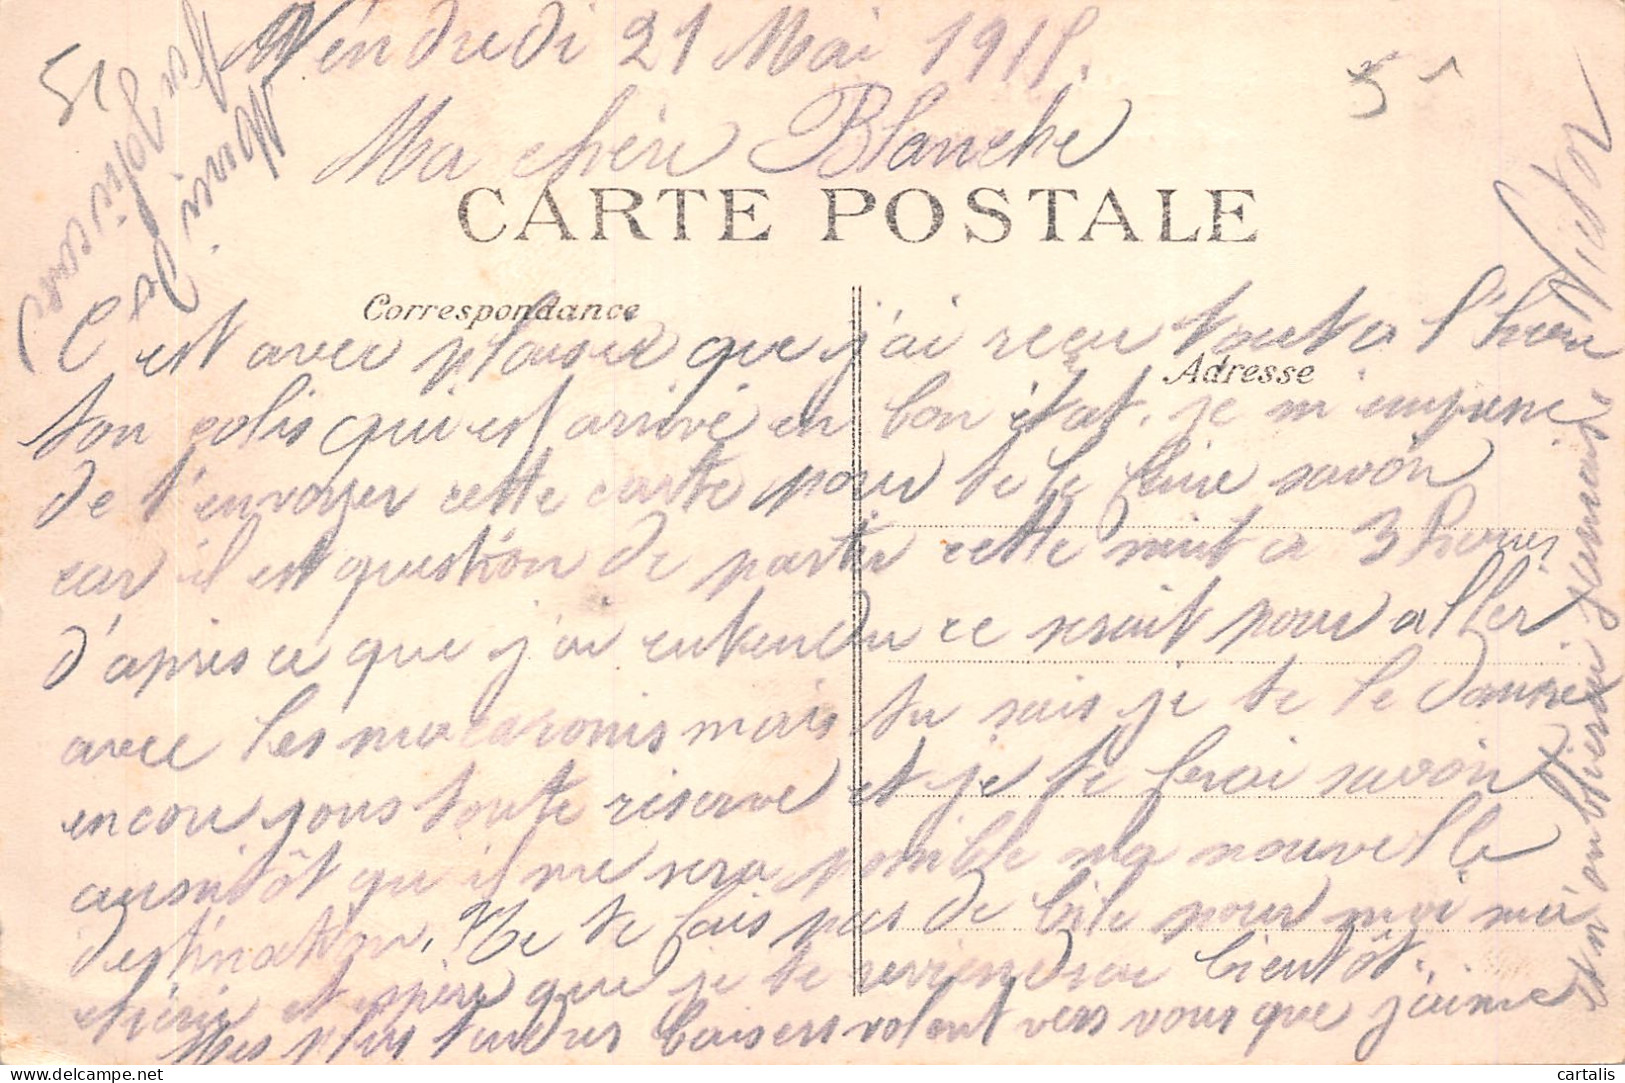 Vendredi 21 Mai 1915.
Ma chérie Blanche
CARTE POSTALE
Correspondance
Adresse
C'est avec plaisir que j'ai reçu tout a l'heure
ton colis qui est arrivé en bon état, je m'empresse
de t'envoyer cette carte pour te le faire savoir
car il est question de partir cette nuit a 3 heures
d'après ce que j'ai entendu ce serait pour aller
avec les macaronis mais tu sais je te le donne
encore sous toute réserve et je te ferai savoir
aussitôt qu'il me sera possible ma nouvelle
destination. Ne te fais pas de bile pour moi ma
chérie et espère que je te reviendrai bientôt.
Mes plus tendres baisers volent vers vous que j'aime
et n'oublierai jamais.
Victor
51
5